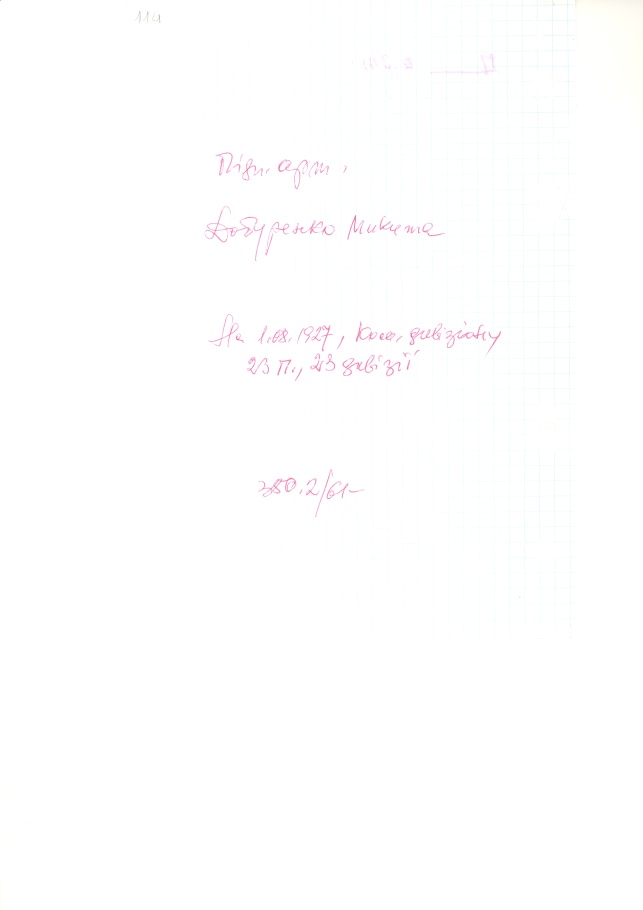 114
Підп. арт.
Добуренко Микита
На 1.08.1927, Ком. дивізіону
23 п., 23 дивізії
380.2/61-